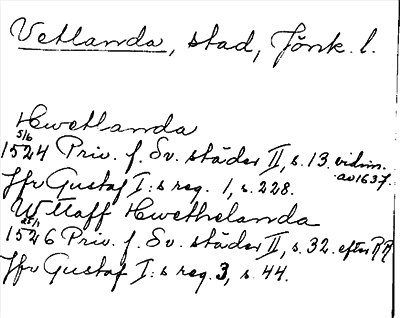 Vetlanda, stad, Jönk. l.
Hwetlanda
5/6
1524 Priv. f. Sv. städer II, s. 13. vidim. av 1637.
Jfr Gustaf I:s reg. 1, s. 228.
Wttaff Hwethelanda
25/1
1526 Priv. f. Sv. städer II, s. 32. efter RR
Jfr Gustaf I:s reg. 3, s. 44.